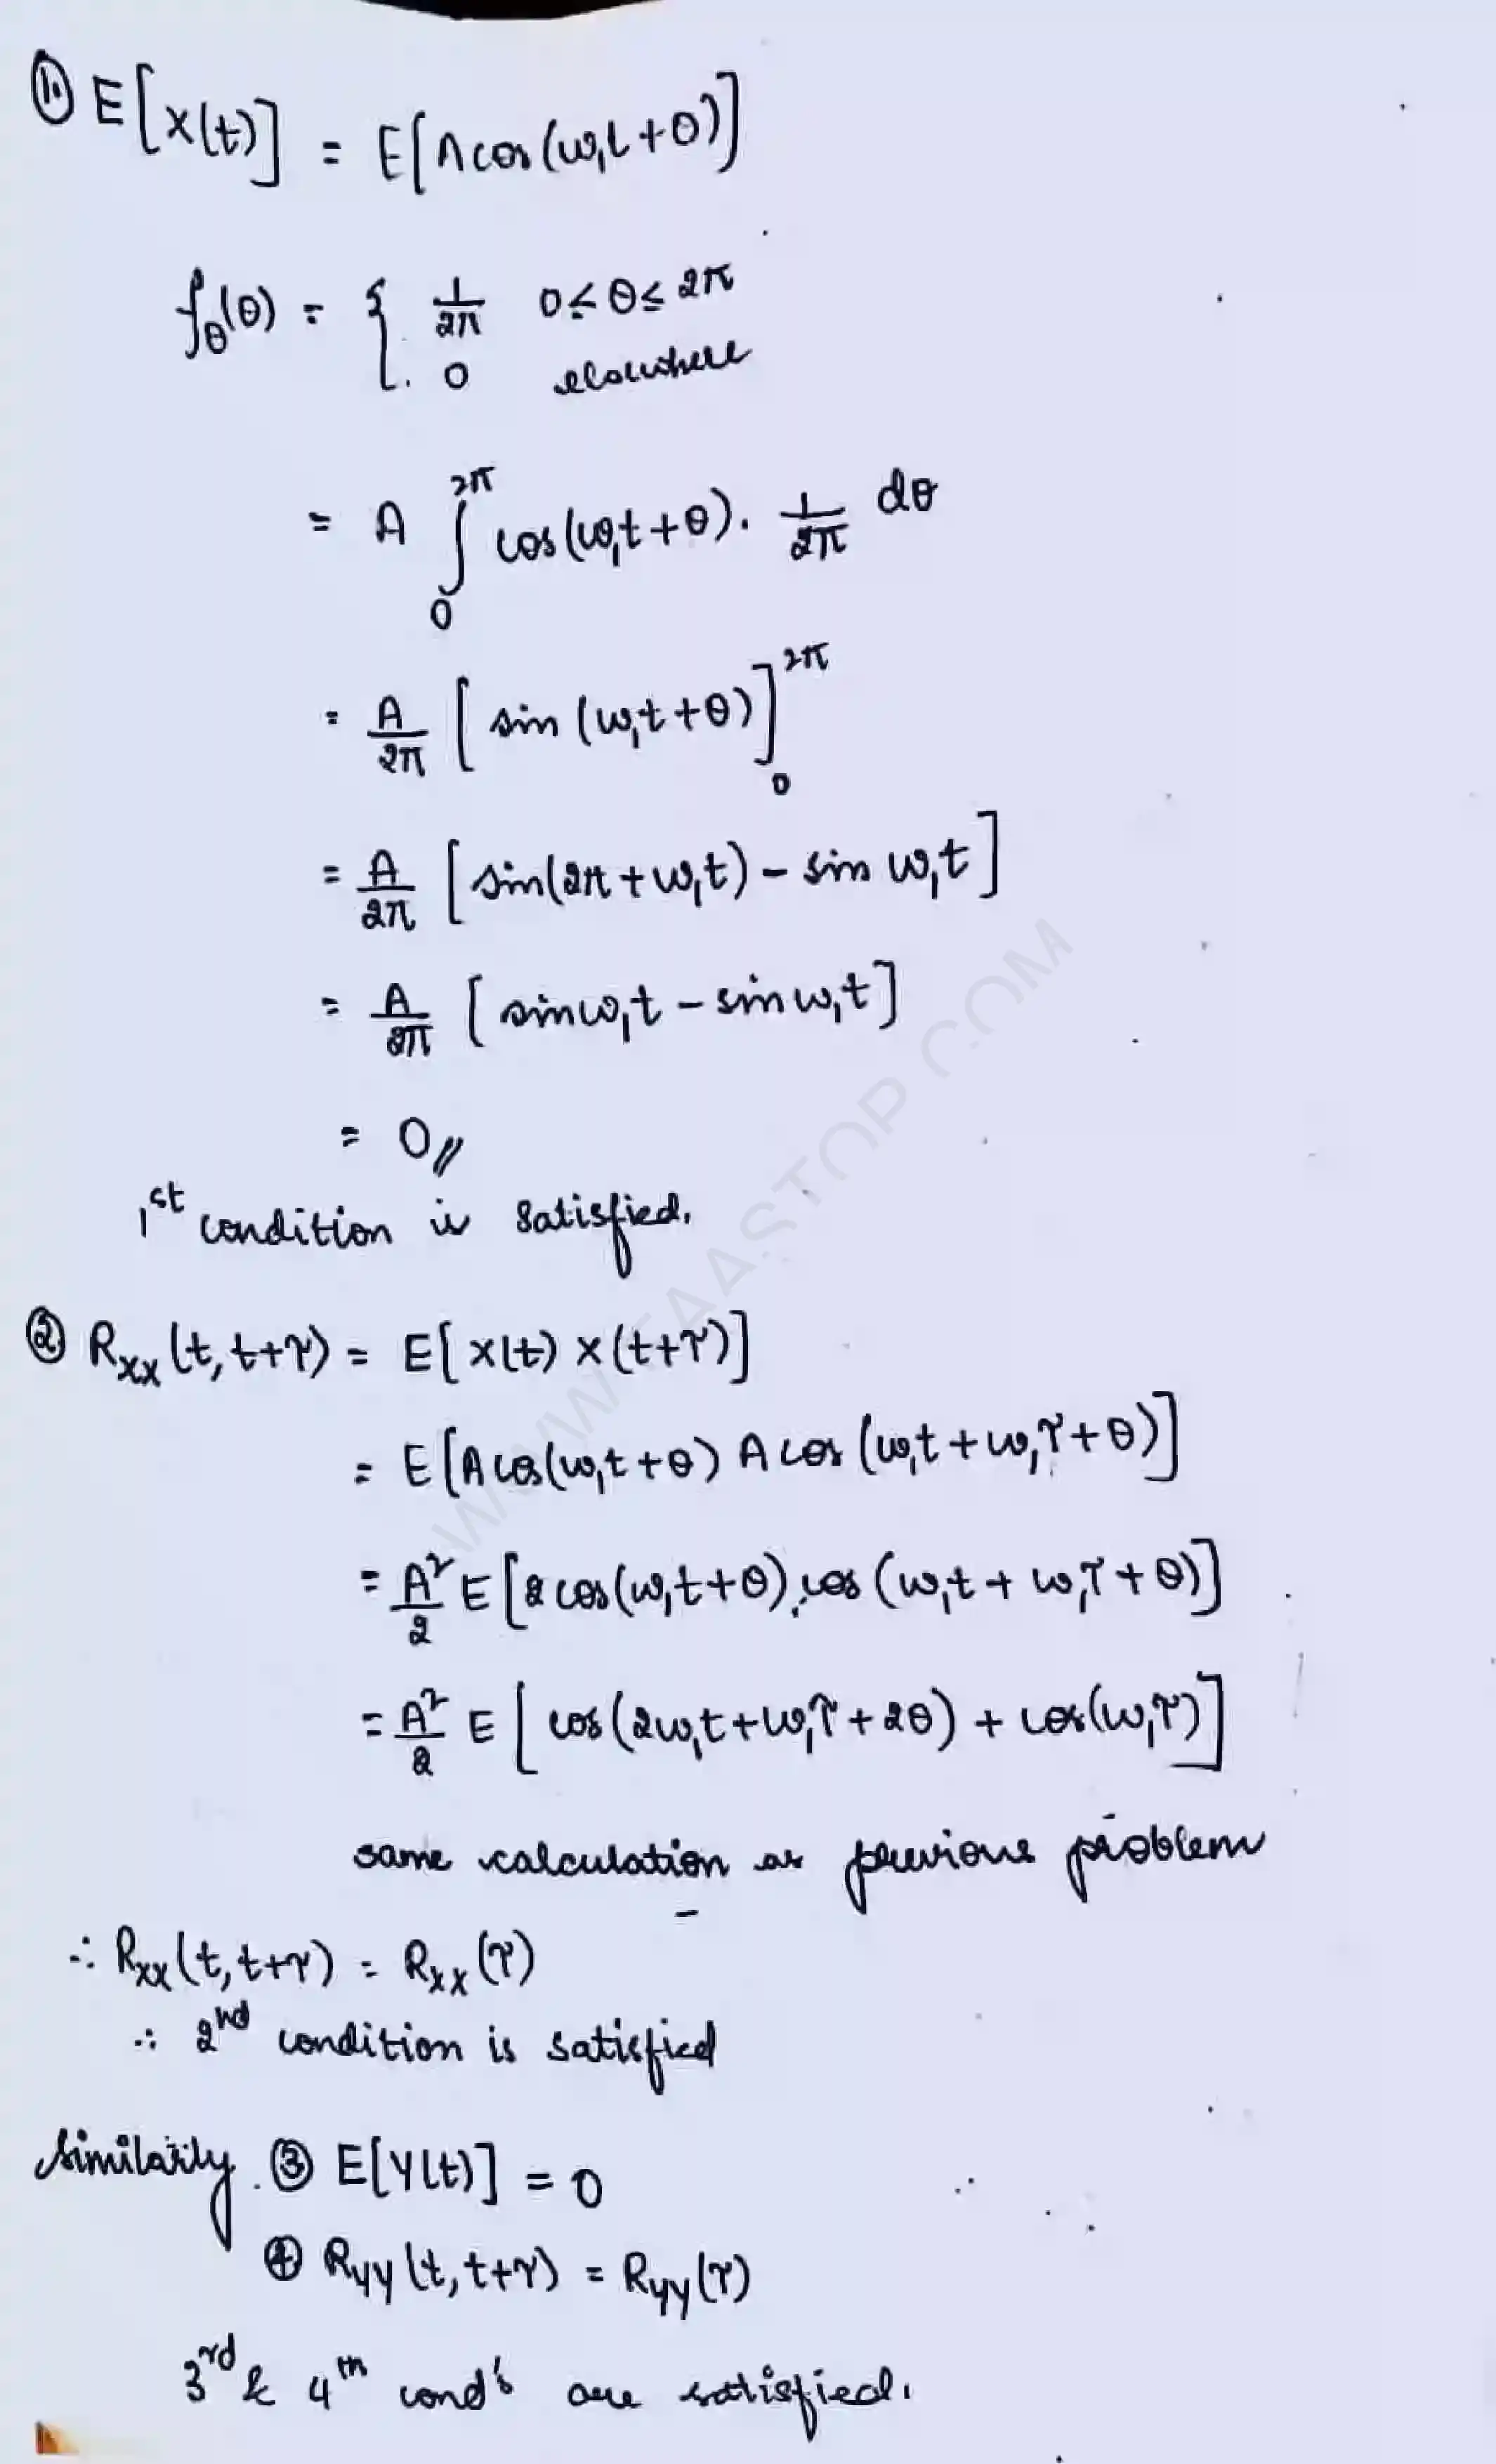 ① E[X(t)] = E[A cos(ω₁t+θ)]
fθ(θ) = { 1/2π 0≤θ≤2π
0 elsewhere
= A ∫₀^2π cos(ω₁t+θ). 1/2π dθ
= A/2π [sin(ω₁t+θ)]₀^2π
= A/2π [sin(2π+ω₁t) - sin ω₁t]
= A/2π [sinω₁t - sinω₁t]
= 0//
1st condition is satisfied.
② Rxx(t, t+τ) = E[X(t) X(t+τ)]
= E[A cos(ω₁t+θ) A cos(ω₁t+ω₁τ+θ)]
= A²/2 E[2 cos(ω₁t+θ).cos(ω₁t+ω₁τ+θ)]
= A²/2 E[cos(2ω₁t+ω₁τ+2θ) + cos(ω₁τ)]
same calculation as previous problem
∴ Rxx(t, t+τ) = Rxx(τ)
∴ 2nd condition is satisfied
Similarly. ③ E[Y(t)] = 0
④ Ryy(t, t+τ) = Ryy(τ)
3rd & 4th cond's are satisfied.
WWW.FAASTOP.COM